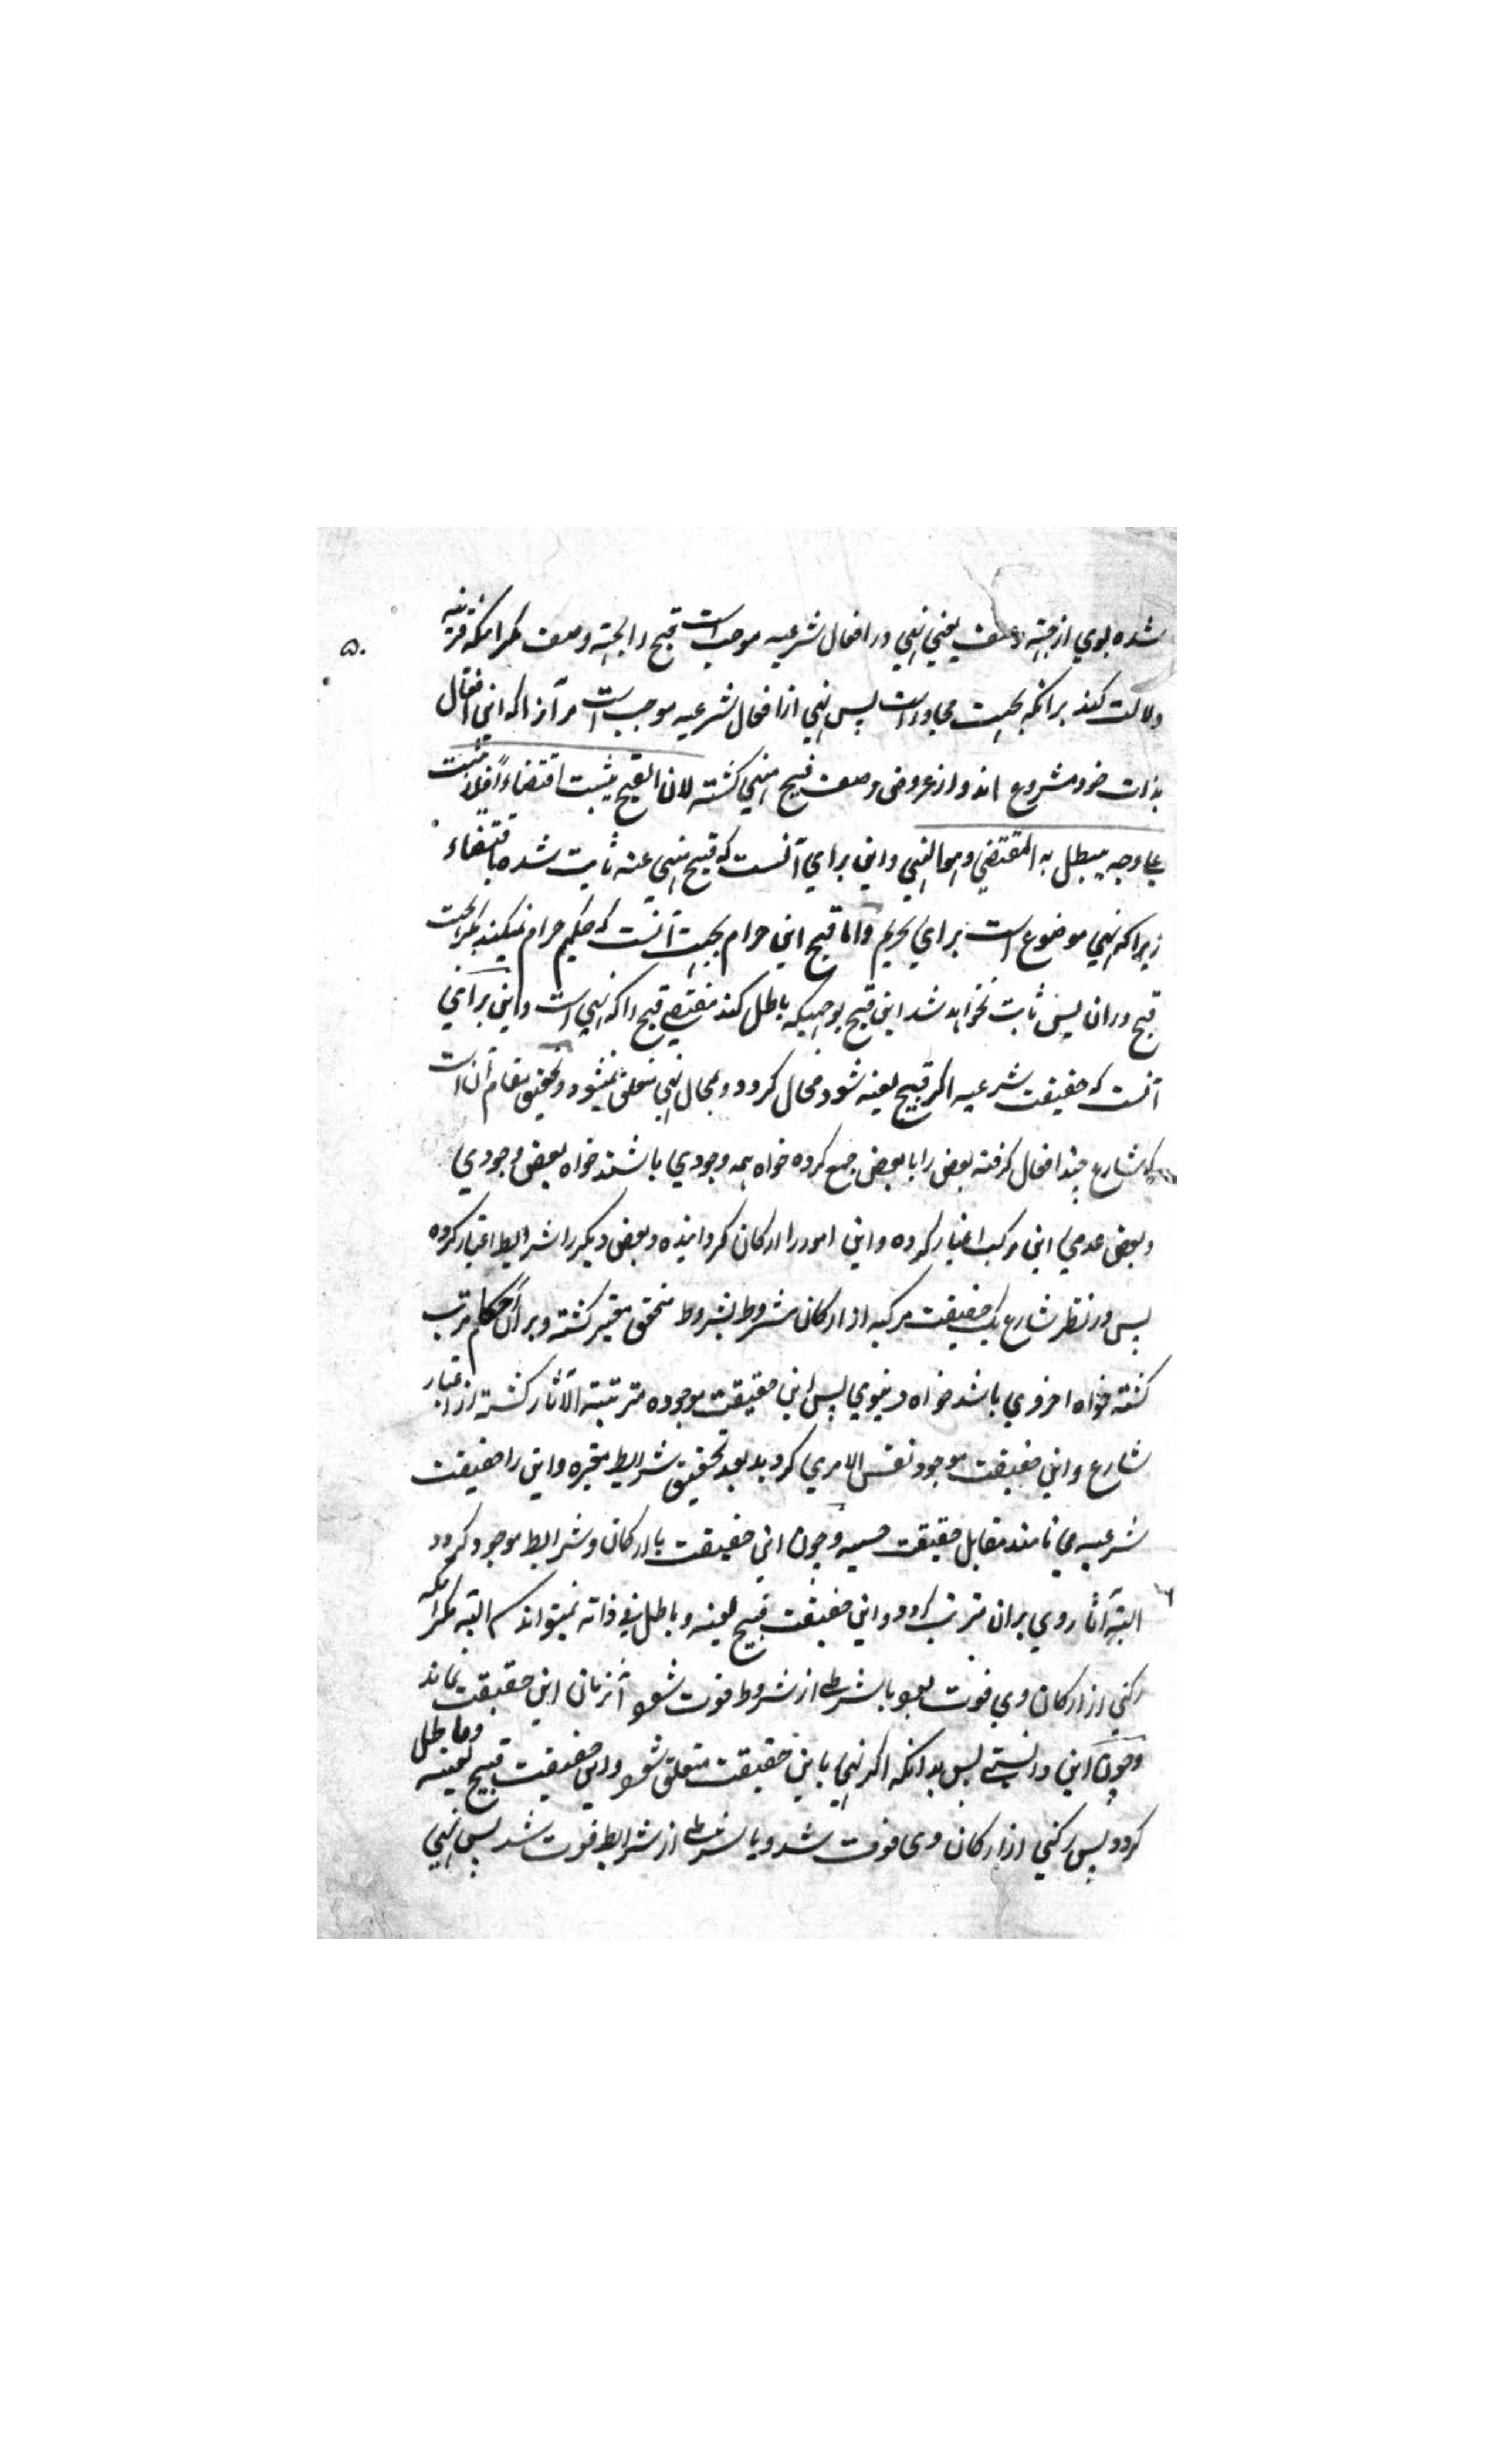 شده بوي از جهته وصف يعني نهي در افعال شرعيه موجب است قبح را لجهته وصف مكر انكه قرينه
۵۰
دلالت كند برانكه بجهت مجاور است پس نهي از افعال شرعيه موجب است مر آنرا كه اين افعال
بذات خود مشروع اند و از عروض وصف قبيح منهي كشته لان القبح يثبت اقتضاءً فلا يثبت
علي وجه يبطل به المقتضي وهو النهي واين براي آنست كه قبح منهي عنه ثابت شده باقتضاء
زيرا كه نهي موضوع است براي تحريم واما قبح اين حرام بجهت آنست كه حكيم حرام نميكند مكر بجهت
قبح دران پس ثابت نخواهد شد اين قبح بوجهيكه باطل كند مقتضي قبح را كه نهي است واين براي
آنست كه حقيقت شرعيه اكر قبيح لعينه شود محال كردد و بمحال نهي متعلق نميشود وتحقيق مقام آن است
كه شارع چند افعال كرفته بعض را با بعض جمع كرده خواه همه وجودي باشند خواه بعض وجودي
وبعض عدمي اين مركب اعتبار كرده واين امور را اركان كردانيده وبعض ديكر را شرايط اعتبار كرده
پس در نظر شارع يك حقيقت مركبه از اركان مشروط بشروط متحقق معتبر كشته و بر آن احكام مرتب
كشته خواه اخروي باشد خواه دنيوي پس اين حقيقت موجوده مترتبة الآثار كشته از اعتبار
شارع واين حقيقت موجود نفس الامري كرديد بعد تحقيق شرايط معتبره واين را حقيقت
شرعيه مي نامند مقابل حقيقت حسيه وچون اين حقيقت با اركان وشرايط موجود كردد
البته آثار وي بران مترتب كردد واين حقيقت قبيح لعينه و باطل في ذاته نميتواند البته مكر انكه
ركني از اركان وي فوت بود يا شرط از شروط فوت شود آنزمان اين حقيقت نماند
وچون اين دانستي پس بدانكه اكر نهي باين حقيقت متعلق شود واين حقيقت قبيح لعينه وباطل
كردد پس ركني از اركان وى فوت شد ويا شرط از شرايط فوت شد پس نهي